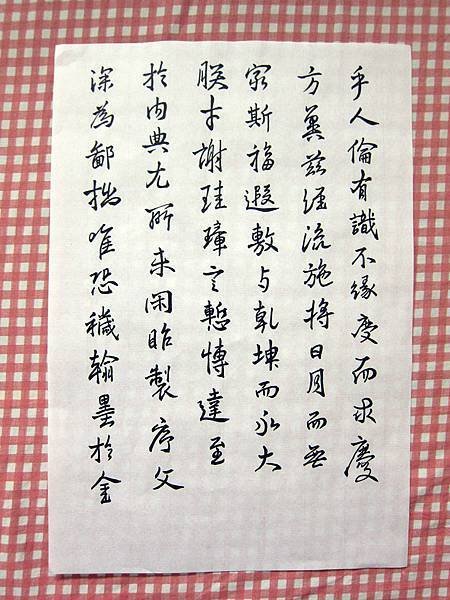 乎人倫有識不緣慶而求慶
方冀茲經流施將日月而無
窮斯福遐敷与乾坤而永大
朕才謝珪璋言慙博達至
於内典尤所未閑昨製序文
深為鄙拙唯恐穢翰墨於金